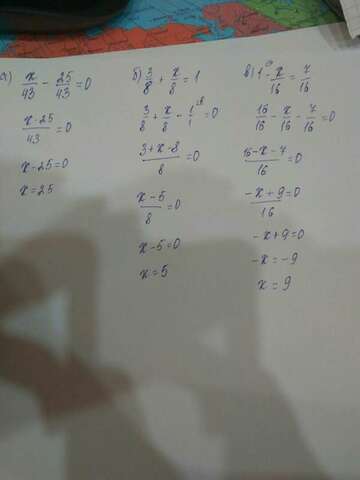 а) x/43 - 25/43 = 0
x·25/43 = 0
x-25=0
x=25
б) 3/8 + x/8 = 1
3/8 + x/8 - 1/1 = 0
3+x-8/8 = 0
x-5/8 = 0
x-5=0
x=5
в) 1 - x/16 = 7/16
16/16 - x/16 - 7/16 = 0
16-x-7/16 = 0
-x+9=0/16
-x+9=0
-x=-9
x=9